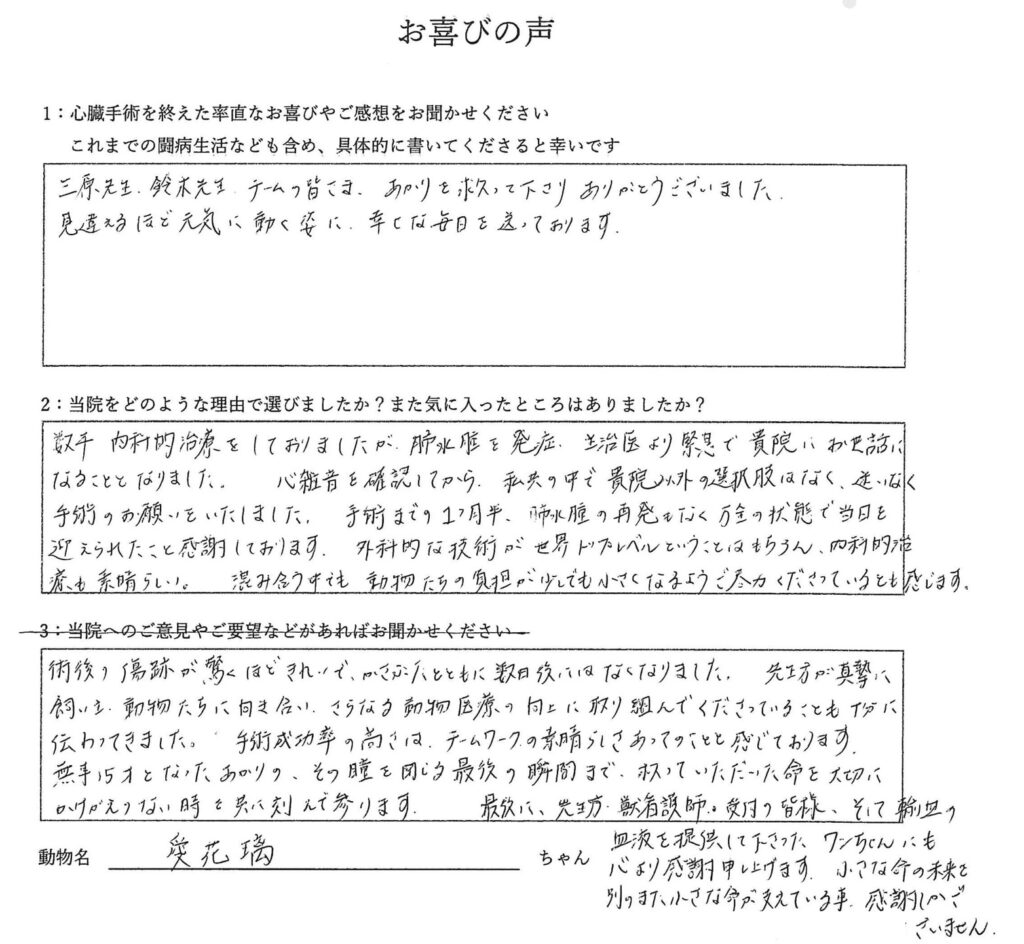 お喜びの声
1：心臓手術を終えた率直なお喜びやご感想をお聞かせください
これまでの闘病生活なども含め、具体的に書いてくださると幸いです
三原先生、鈴木先生、チームの皆さま、あかりを救って下さりありがとうございました。
見違えるほど元気に動く姿に、幸せな毎日を送っております。
2：当院をどのような理由で選びましたか？また気に入ったところはありましたか？
数年 内科的治療をしておりましたが、肺水腫を発症、主治医より緊急で貴院にお世話に
なることとなりました。 心雑音を確認してから、私共の中で貴院以外の選択肢はなく、迷いなく
手術のお願いをいたしました。 手術までの1ヶ月半、肺水腫の再発もなく万全の状態で当日を
迎えられたこと感謝しております。 外科的な技術が世界トップレベルということはもちろん、内科的治
療も素晴らしい。 混み合う中でも 動物たちの負担が少しでも小さくなるようご尽力くださっているとも感じます。
3：当院へのご意見やご要望などがあればお聞かせください
術後の傷跡が驚くほどきれいで、かさぶたとともに数日後にはなくなりました。 先生方が真摯に
飼い主、動物たちに向き合い、さらなる動物医療の向上に取り組んでくださっていることも十分に
伝わってきました。 手術成功率の高さは、チームワークの素晴らしさあってのことと感じております。
無事15才となったあかりの、その瞳を閉じる最後の瞬間まで、救っていただいた命を大切に
かけがえのない時を共に刻んで参ります。 最後に、先生方、獣看護師、受付の皆様、そして輸血の
血液を提供して下さった ワンちゃんにも
心より感謝申し上げます。 小さな命の未来を
別のまた小さな命が支えている事、感謝しかご
ざいません。
動物名 愛花璃 ちゃん